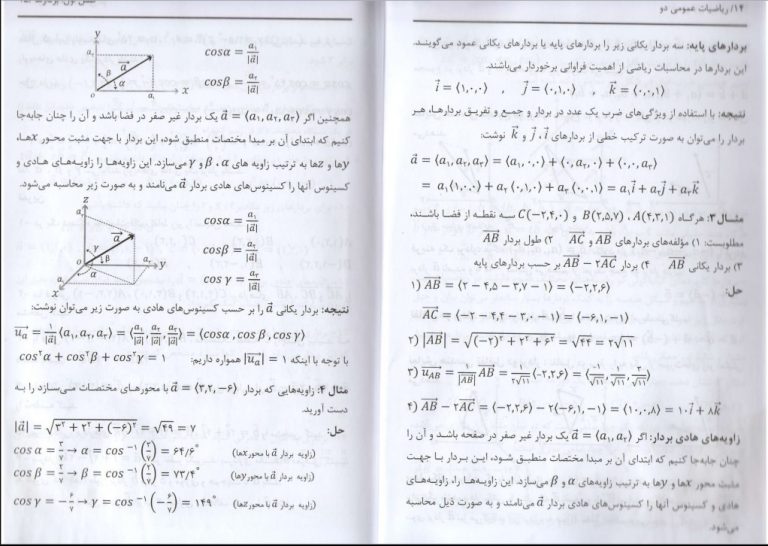 ۱۴/ ریاضیات عمومی دو
بردارهای پایه: سه بردار یکانی زیر را بردارهای پایه یا بردارهای یکانی عمود می‌گویند.
این بردارها در محاسبات ریاضی از اهمیت فراوانی برخوردار می‌باشند.
i⃗ = ⟨۱,۰,۰⟩ , j⃗ = ⟨۰,۱,۰⟩ , k⃗ = ⟨۰,۰,۱⟩
نتیجه: با استفاده از ویژگی‌های ضرب یک عدد در بردار و جمیع و تفریق بردارها، هر
بردار را می‌توان به صورت ترکیب خطی از بردارهای i⃗ ، j⃗ و k⃗ نوشت:
a⃗ = ⟨a₁, a₂, a₃⟩ = ⟨a₁, ۰,۰⟩ + ⟨۰, a₂, ۰⟩ + ⟨۰,۰, a₃⟩
= a₁⟨۱,۰,۰⟩ + a₂⟨۰,۱,۰⟩ + a₃⟨۰,۰,۱⟩ = a₁i⃗ + a₂j⃗ + a₃k⃗
مثال ۳: هرگاه A(۴,۳,۱) ، B(۲,۵,۷) و C(−۲,۴,۰) سه نقطه از فضا باشند،
مطلوبست: ۱) مؤلفه‌های بردارهای AB⃗ و AC⃗ ۲) طول بردار AB⃗
۳) بردار یکانی AB⃗ ۴) بردار AB⃗ − ۲AC⃗ بر حسب بردارهای پایه
حل:
۱) AB⃗ = ⟨۲ − ۴,۵ − ۳,۷ − ۱⟩ = ⟨−۲,۲,۶⟩
AC⃗ = ⟨−۲ − ۴,۴ − ۳,۰ − ۱⟩ = ⟨−۶,۱,−۱⟩
۲) |AB⃗| = √((−۲)² + ۲² + ۶²) = √۴۴ = ۲√۱۱
۳) u_AB⃗ = ۱/|AB⃗| AB⃗ = ۱/(۲√۱۱) ⟨−۲,۲,۶⟩ = ⟨−۱/√۱۱, ۱/√۱۱, ۳/√۱۱⟩
۴) AB⃗ − ۲AC⃗ = ⟨−۲,۲,۶⟩ − ۲⟨−۶,۱,−۱⟩ = ⟨۱۰,۰,۸⟩ = ۱۰i⃗ + ۸k⃗
زاویه‌های هادی بردار: اگر a⃗ = ⟨a₁, a₂⟩ یک بردار غیر صفر در صفحه باشد و آن را
چنان جابه‌جا کنیم که ابتدای آن بر مبدا مختصات منطبق شود، این بردار با جهت
مثبت محور xها و yها به ترتیب زاویه‌های α و β می‌سازد. این زاویه‌ها را، زاویه‌های
هادی و کسینوس آنها را کسینوس‌های هادی بردار a⃗ می‌نامند و به صورت ذیل محاسبه
می‌شود.
y
a₂
a⃗
β
α
o
a₁
x
cosα = a₁/|a⃗|
cosβ = a₂/|a⃗|
همچنین اگر a⃗ = ⟨a₁, a₂, a₃⟩ یک بردار غیر صفر در فضا باشد و آن را چنان جابه‌جا
کنیم که ابتدای آن بر مبدا مختصات منطبق شود، این بردار با جهت مثبت محور xها،
yها و zها به ترتیب زاویه های α ، β و γ می‌سازد. این زاویه‌ها را زاویه‌های هادی و
کسینوس آنها را کسینوس‌های هادی بردار a⃗ می‌نامند و به صورت زیر محاسبه می‌شود.
z
a⃗
γ
β
α
o
y
x
cosα = a₁/|a⃗|
cosβ = a₂/|a⃗|
cos γ = a₃/|a⃗|
نتیجه: بردار یکانی a⃗ را بر حسب کسینوس‌های هادی به صورت زیر می‌توان نوشت:
u_a⃗ = ۱/|a⃗| ⟨a₁, a₂, a₃⟩ = ⟨a₁/|a⃗|, a₂/|a⃗|, a₃/|a⃗|⟩ = ⟨cosα, cosβ, cosγ⟩
با توجه با اینکه |u_a⃗| = ۱ همواره داریم: cos²α + cos²β + cos²γ = ۱
مثال ۴: زاویه‌هایی که بردار a⃗ = ⟨۳,۲,−۶⟩ با محورهای مختصات می‌سازد را به
دست آورید.
حل: |a⃗| = √(۳² + ۲² + (−۶)²) = √۴۹ = ۷
cos α = ۳/۷ → α = cos⁻¹(۳/۷) = ۶۴/۶° (زاویه بردار a⃗ با محور xها)
cos β = ۲/۷ → β = cos⁻¹(۲/۷) = ۷۳/۴° (زاویه بردار a⃗ با محور yها)
cos γ = −۶/۷ → γ = cos⁻¹(−۶/۷) = ۱۴۹° (زاویه بردار a⃗ با محور zها)